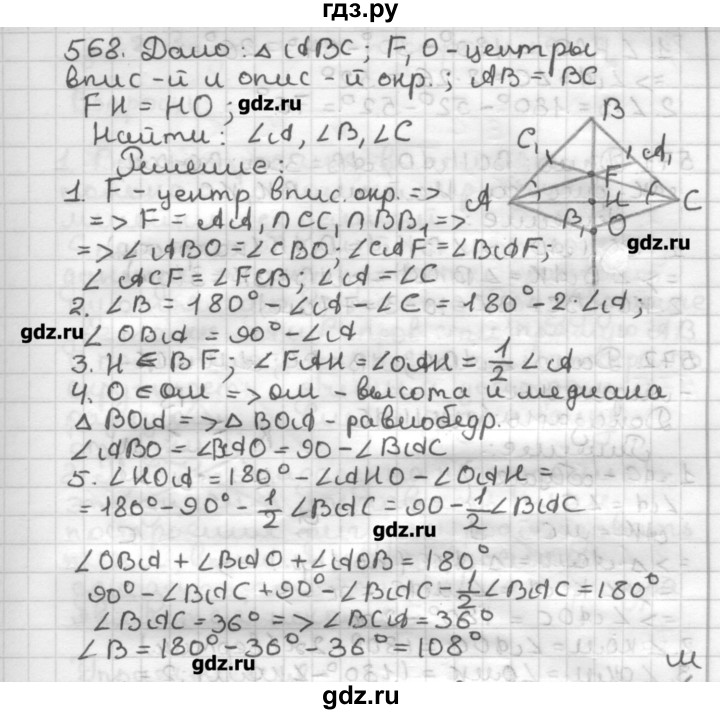 гдз.ру
568. Дано: △ABC; F, O - центры
впис-й и опис-й окр.; AB = BC
FH = HO; gdz.ru
Найти: ∠A, ∠B, ∠C
Решение:
1. F - центр впис. окр. =>
=> F = AA₁∩CC₁∩BB₁ =>
=> ∠ABO = ∠CBO; ∠CAF = ∠BAF;
∠ACF = ∠FCB; ∠A = ∠C
2. ∠B = 180° - ∠A - ∠C = 180° - 2·∠A;
gdz.ru ∠OBA = 90° - ∠A
3. H ∈ BF; ∠FAH = ∠OAH = 1/2 ∠A
4. O ∈ OM => OM - высота и медиана
△BOA => △BOA - равнобедр.
∠ABO = ∠BAO = 90 - ∠BAC
5. ∠HOA = 180° - ∠AHO - ∠OAH =
= 180° - 90° - 1/2 ∠BAC = 90 - 1/2 ∠BAC
gdz.ru
∠OBA + ∠BAO + ∠AOB = 180°
90° - ∠BAC + 90° - ∠BAC - 1/2 ∠BAC = 180°
∠BAC = 36° => ∠BCA = 36°
∠B = 180° - 36° - 36° = 108°
gdz.ru
B
C₁
A₁
F
A
H
C
B₁
O
gdz.ru
gdz.ru